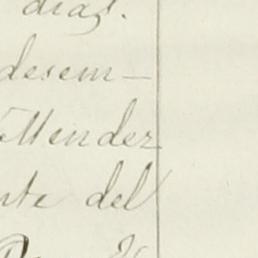 dias.
desem-
Mendez
nte del